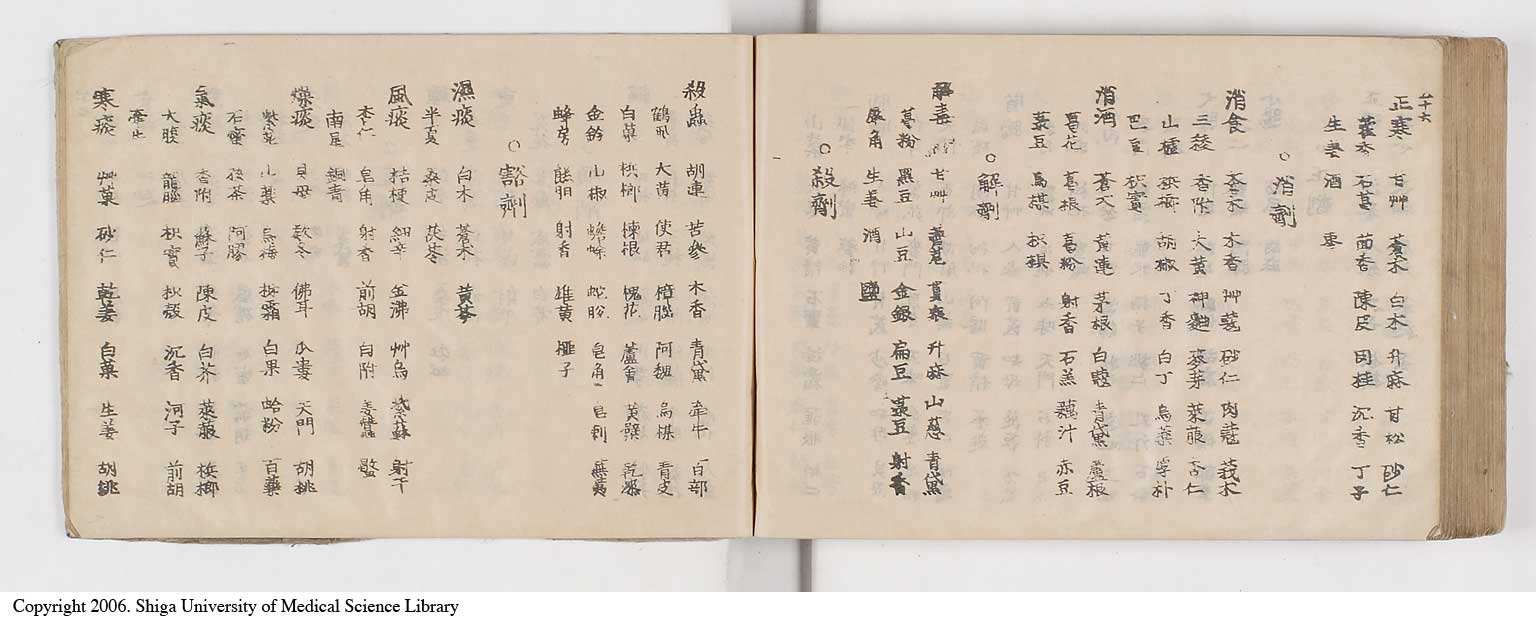 二十六
正寒 甘艸 蒼朮 白朮 升麻 甘松 砂仁
藿香 石菖 茴香 陳皮 肉桂 沉香 丁子
生姜 酒 棗
○消劑
消食 蒼朮 木香 艸蔻 砂仁 肉蔻 莪朮
三稜 香附 大黄 神麯 麥芽 萊菔 杏仁
山樝 梹榔 胡椒 丁香 白丁 烏藥 厚朴
巴豆 枳實
消酒 蒼朮 黄連 茅根 白蔻 青黛 蘆根
葛花 葛根 葛粉 射香 石羔 藕汁 赤豆
菉豆 烏梅 枳椇
○解劑
解毒 甘艸 薺苨 貫衆 升麻 山慈 青黛
葛粉 黑豆 山豆 金銀 扁豆 菉豆 射香
犀角 生姜 酒 鹽
○殺劑
殺蟲 胡連 苦參 木香 青黛 牽牛 百部
鶴虱 大黄 使君 樟腦 阿魏 烏梅 青皮
白菓 梹榔 楝根 槐花 蘆會 黄檗 乾漆
金鈎 山椒 蟾蜍 蛇肦 皂角 皂刺 蕪荑
蜂房 射香 雄黄 榧子
○豁劑
濕痰 白朮 蒼木 黄芩
半夏 桑皮 茯苓
風痰 桔梗 細辛 金沸 艸烏 紫蘇 射干
杏仁 皂角 射香 前胡 白附 姜蠶
南星 銅青
燥痰 貝母 欵冬 佛耳 瓜蔞 天門 胡桃
紫菀 山藥 烏梅 柳霜 白果 蛤粉 百藥
石蜜 後茶 阿膠
氣痰 香附 蘇子 陳皮 白芥 萊菔 梹榔
大腹 龍腦 枳實 枳殼 沉香 河子 前胡
寒痰 艸菓 砂仁 乾姜 白菓 生姜 胡桃